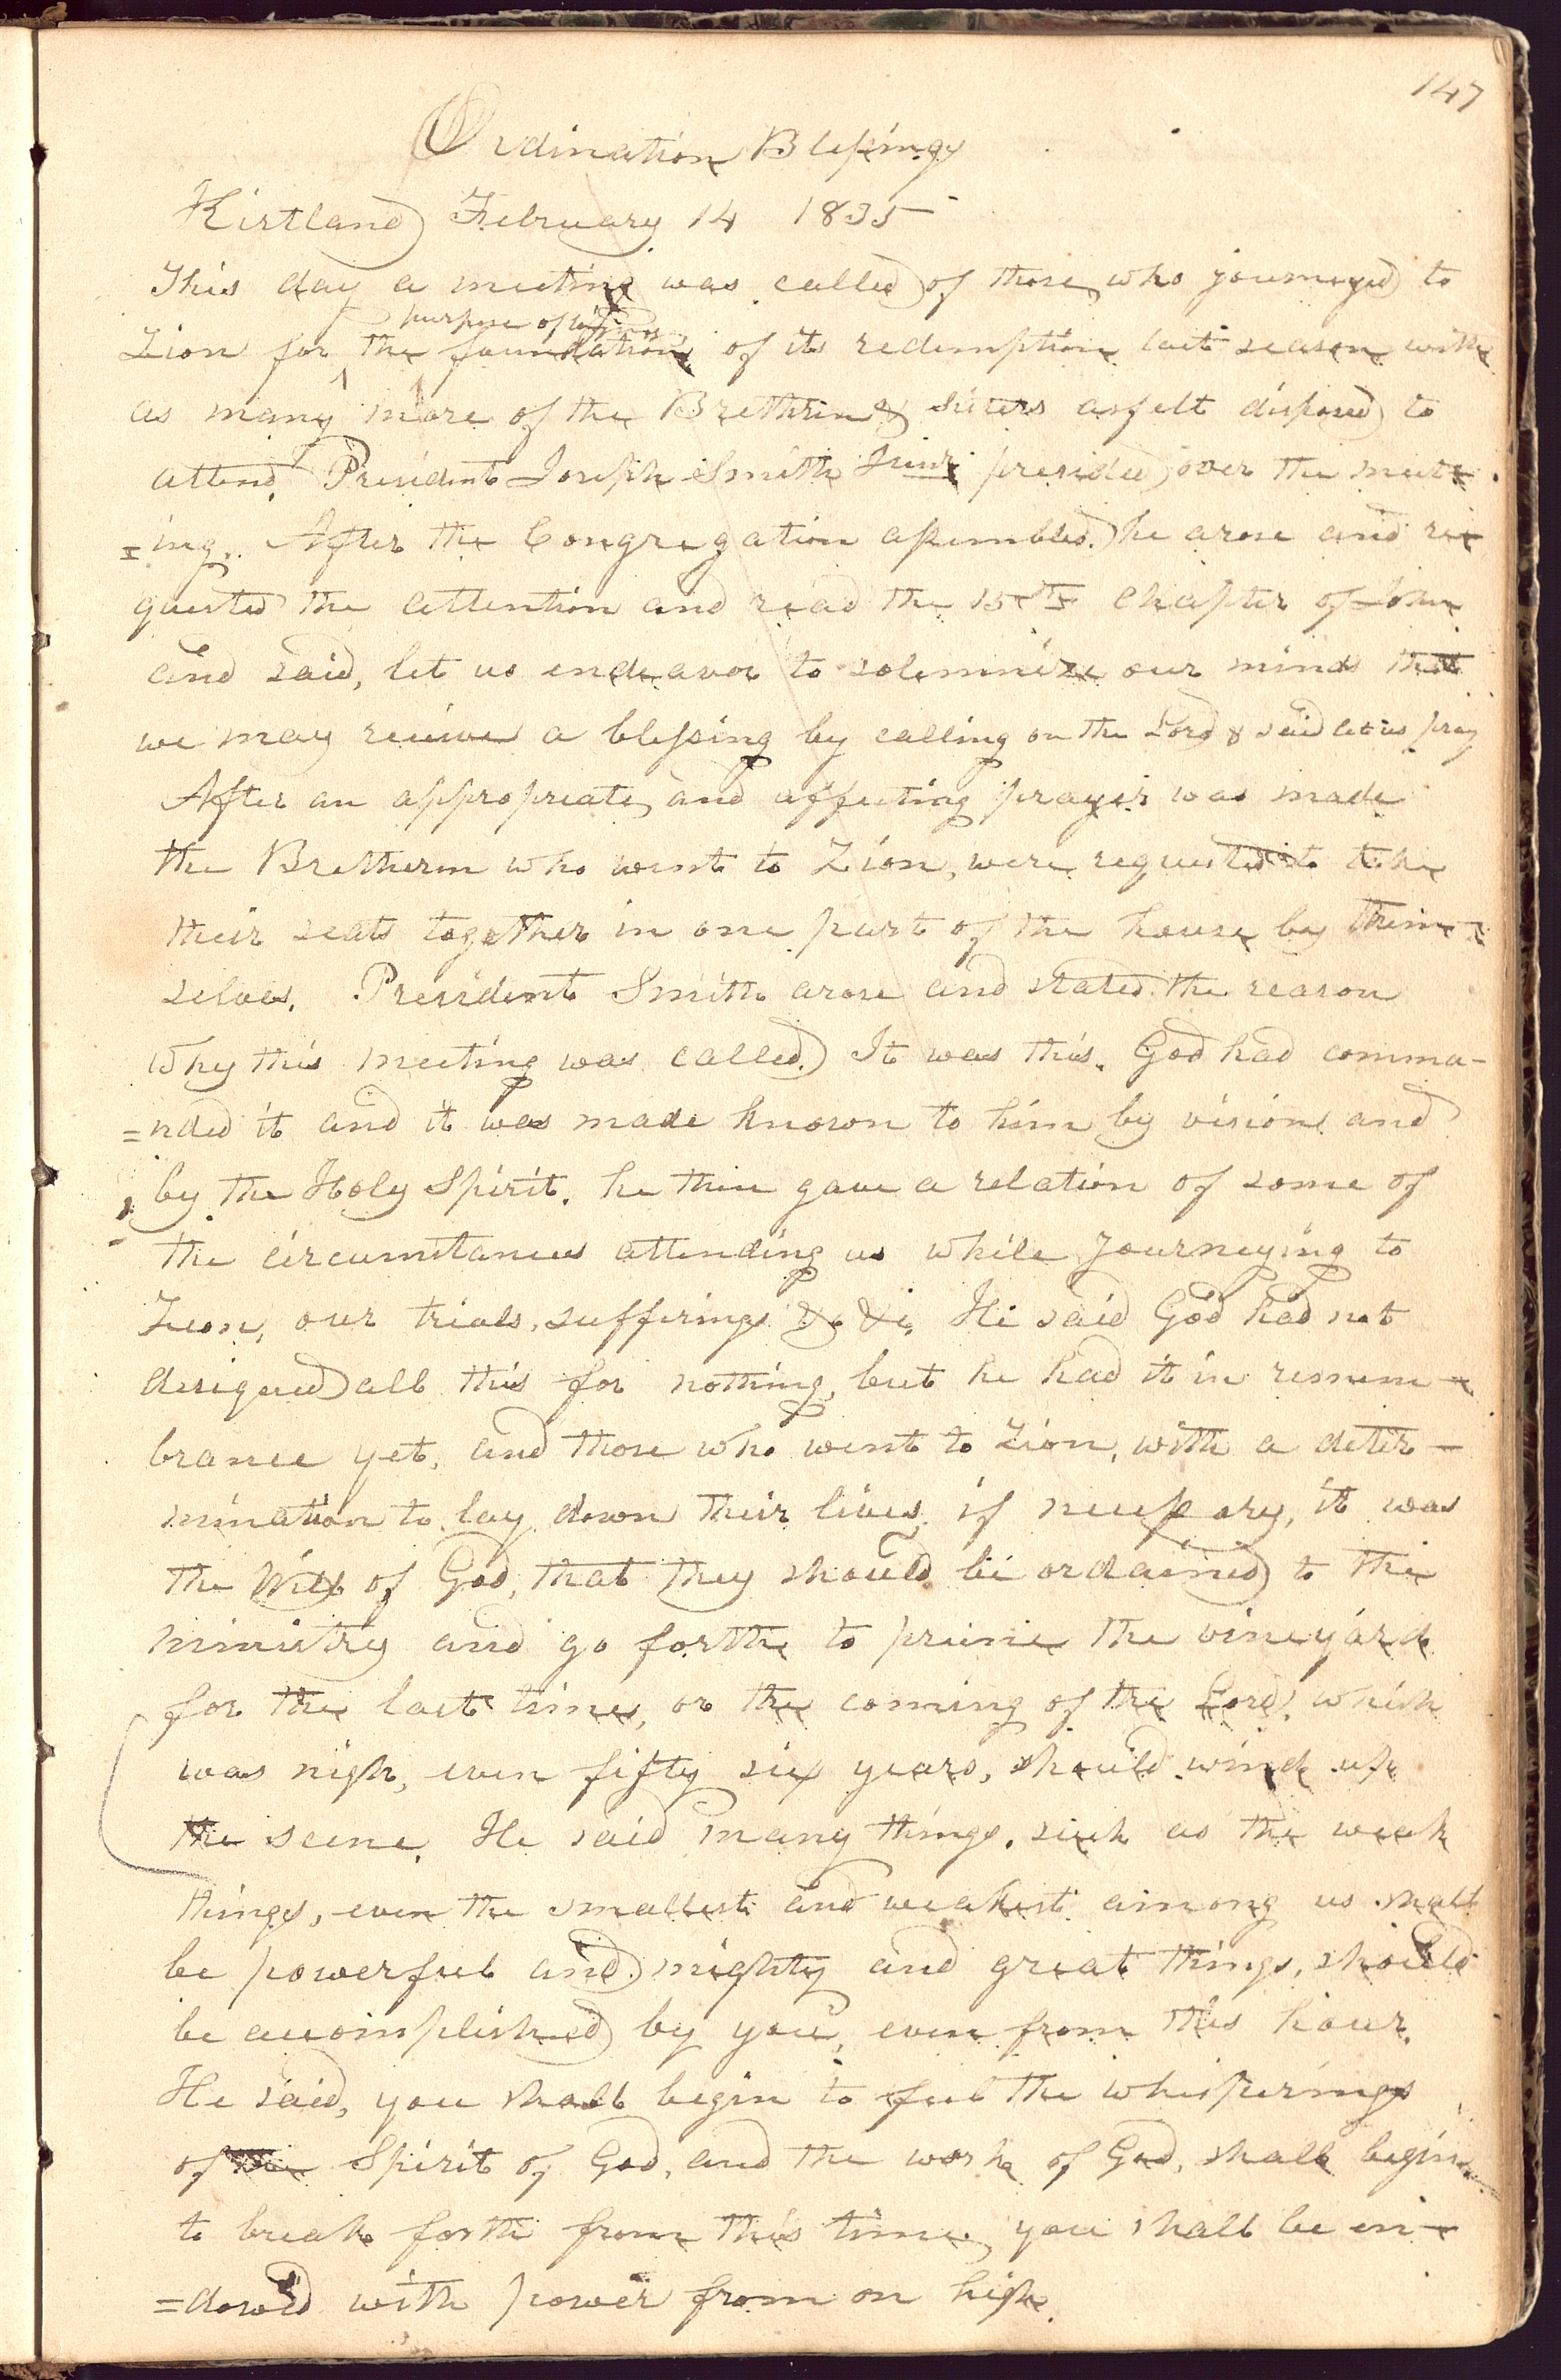 147
Ordination Blessings
Kirtland February 14 1835
This day a meeting was called of those who journeyed to
purpose of laying
Zion for the foundation of its redemption last season with
as many more of the Brethrin & Sisters as felt disposed to
attend. President Joseph Smith Junr. presided over the meet-
=ing. After the Congregation assembled. he arose and re-
quested the attention and read the 15th Chapter of John
and said, let us endeavor to solemnize our minds that
we may recieve a blessing by calling on the Lord & said let us pray
After an appropreate and affecting prayer was made
the Bretheren who went to Zion, were requested to take
their seats together in one part of the house by them-
selves. President Smith arose and stated the reason
why this meeting was called. It was this. God had comma-
=nded it and it was made known to him by vision and
by the Holy Spirit. he then gave a relation of some of
the circumstances attending us while journeying to
Zion, our trials, sufferings &c &c. He said God had not
designed all this for nothing, but he had it in remem-
brance yet, and those who went to Zion, with a deter-
mination to lay down their lives, if necessary, it was
the Will of God, that they should be ordained to the
ministry and go forth to prune the vineyard
for the last time, or the coming of the Lord, which
was nigh, even fifty six years, should wind up
the scene. He said many things, such as the weak
things, even the smallest and weakest among us shall
be powerful and mighty and great things, should
be accomplished by you, even from this hour.
He said, you shall begin to feel the whisperings
of the Spirit of God, and the work of God, shall begin
to break forth from this time, you shall be en-
=dowed with power from on high.